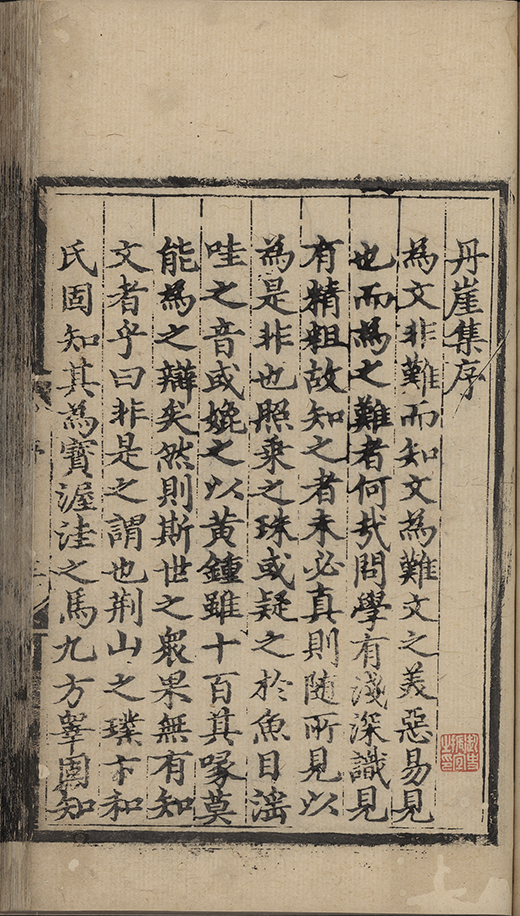 丹崖集序
為文非難而知文為難文之美惡易見
也而為之難者何㢤問學有淺深識見
有精粗故知之者未必真則隨所見以
為是非也照乗之珠或疑之於魚目滛
哇之音或媲之以黄鍾雖十百其喙莫
能為之辯矣然則斯世之衆果無有知
文者乎曰非是之謂也荆山之璞卞和
氏固知其為寳渥洼之馬九方臯固知
序